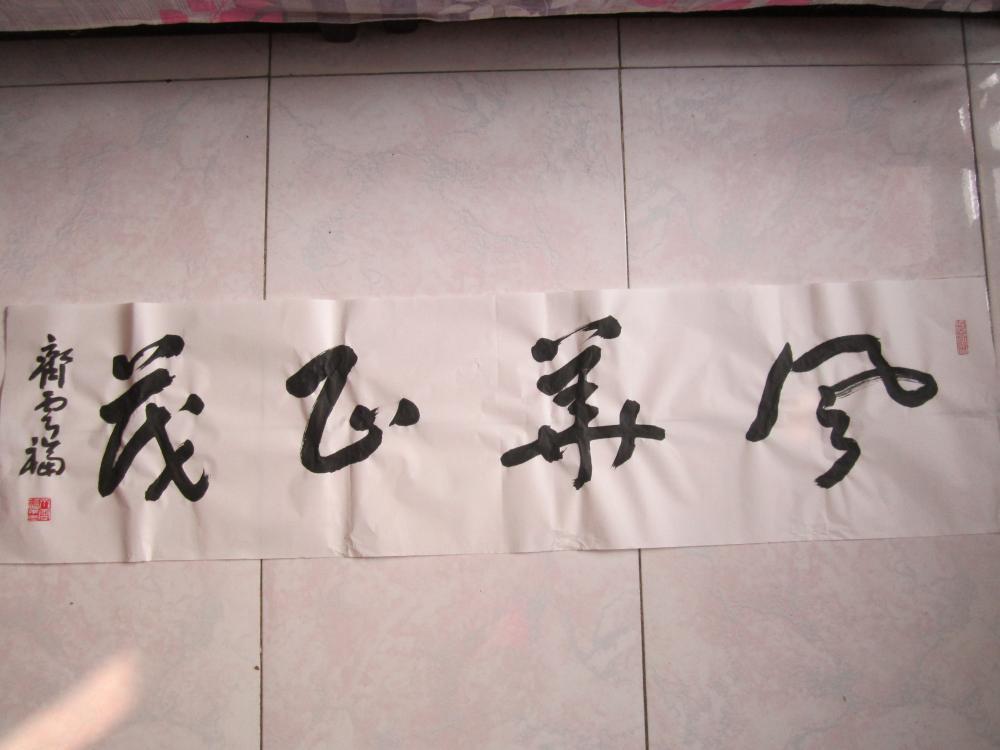 風華正茂
齊雲福